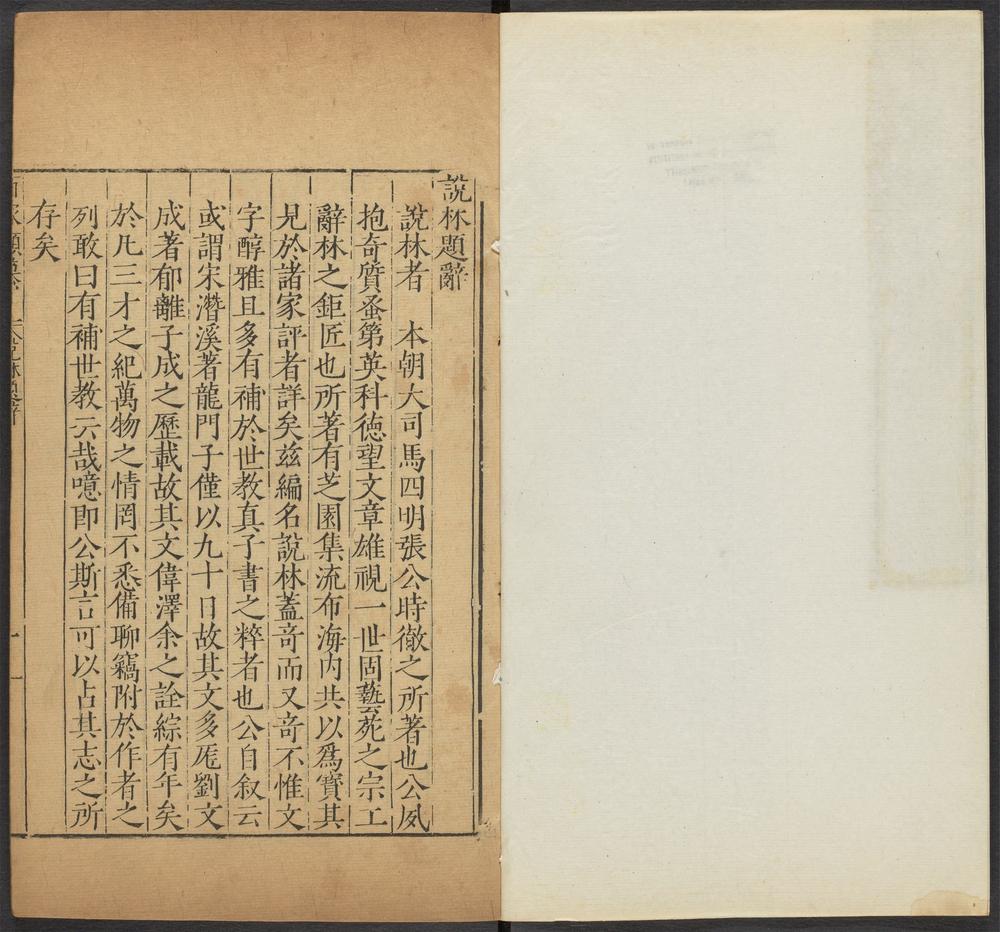 說林題辭
說林者　本朝大司馬四明張公時徹之所著也公夙
抱奇質蚤第英科德望文章雄視一世固藝苑之宗工
辭林之鉅匠也所著有芝園集流布海內共以爲寶其
見於諸家評者詳矣兹編名說林蓋竒而又竒不惟文
字醇雅且多有補於世教真子書之粹者也公自叙云
或謂宋濳溪著龍門子僅以九十日故其文多厖劉文
成著郁離子成之歷載故其文偉澤余之詮綜有年矣
於凡三才之紀萬物之情罔不悉備聊竊附於作者之
列敢曰有補世教云哉噫即公斯言可以占其志之所
存矣